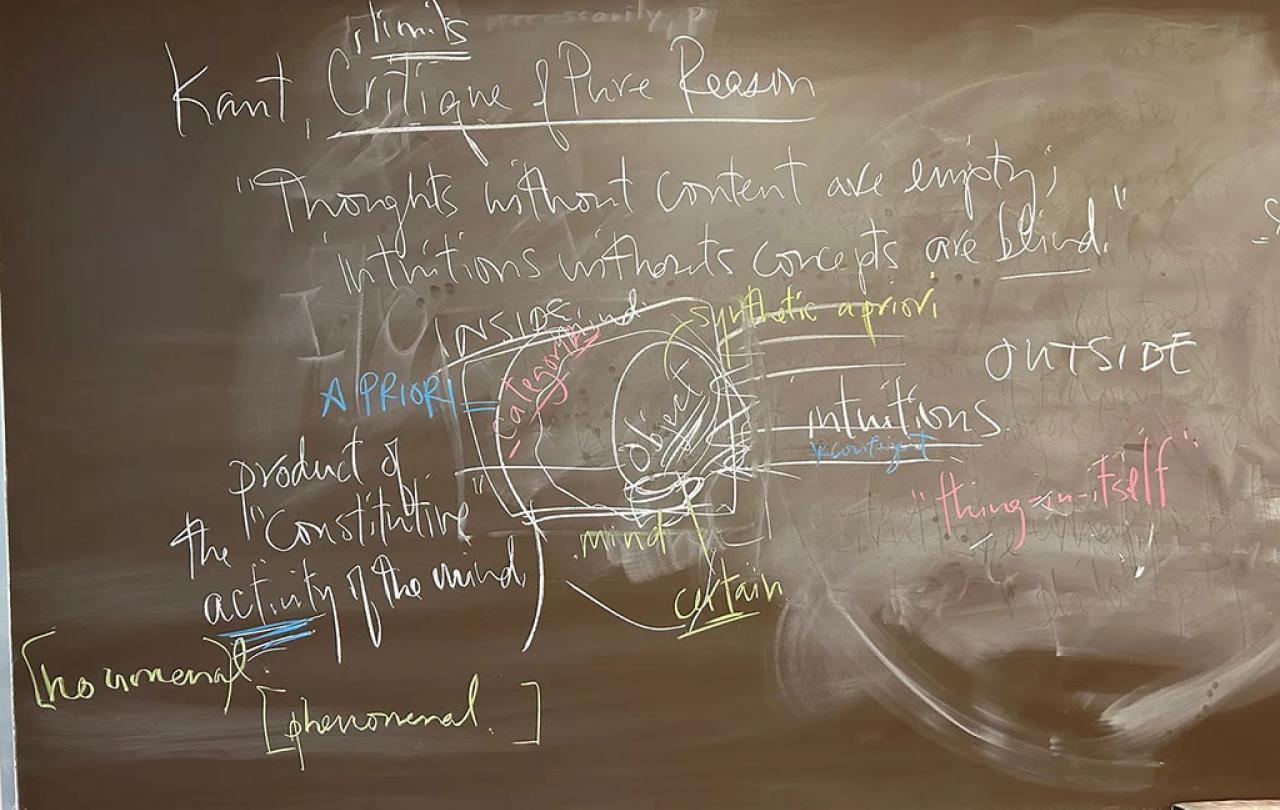 necessarily, p
limits
Kant, Critique of Pure Reason
"Thoughts without content are empty;
intuitions withouts concepts are blind."
I/O
INSIDE mind
synthetic a priori
categories
OUTSIDE
A PRIORI
object
intuitions
product of
"thing-in-itself"
the "Constitutive"
mind
activity of the mind
certain
[noumenal]
[phenomenal.]